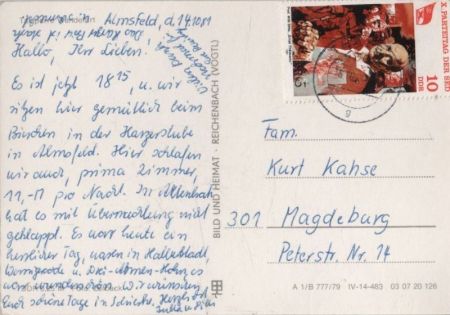 Almsfeld, d. 14.10.81
Hallo, Ihr Lieben!
Es ist jetzt 18 15, u. wir
sitzen hier gemütlich beim
Bierchen in der Harzerstube
in Almsfeld. Hier schlafen
wir auch, prima Zimmer,
11,-M pro Nacht. In
hat es mit Übernachtung nicht
geklappt. Es war heute ein
herrlicher Tag, waren in
Wernigerode u. Drei-Annen-Hohne, es
war wunderschön. Wir wünschen
Euch schöne Tage in
BILD UND HEIMAT · REICHENBACH (VOGTL)
X. PARTEITAG DER SED
10
DDR
g
Fam.
Kurt Kahse
301 Magdeburg
Peterstr. Nr. 14
A 1/B 777/79 IV-14-483 03 07 20 126